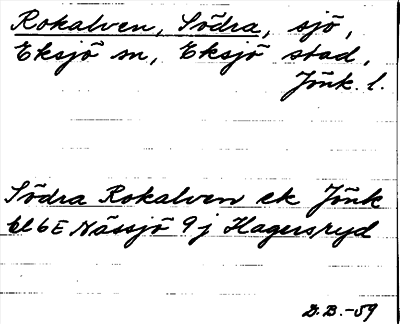 Rokalven, Södra, sjö,
Eksjö sn, Eksjö stad,
Jönk. l.
Södra Rokalven ek Jönk
bl 6E Nässjö 9j Hagersryd
D.B.-59